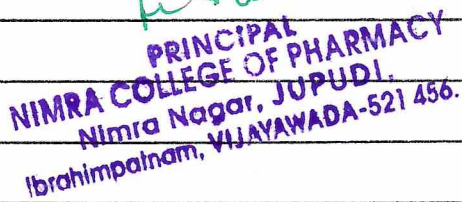 PRINCIPAL
NIMRA COLLEGE OF PHARMACY
Nimra Nagar, JUPUDI,
Ibrahimpatnam, VIJAYAWADA-521 456.